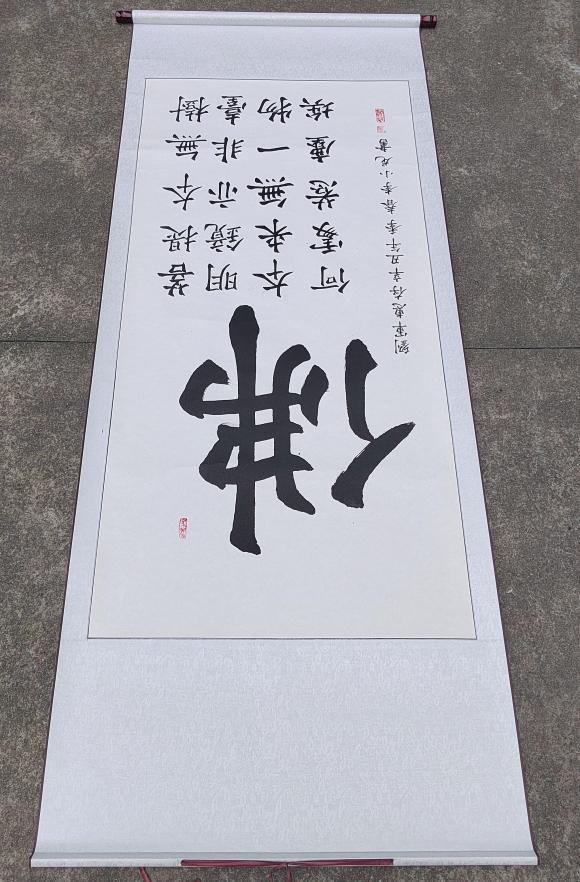 佛
菩提本無樹
明鏡亦非臺
本來無一物
何處惹塵埃
劉軍惠存辛丑年季春李小書